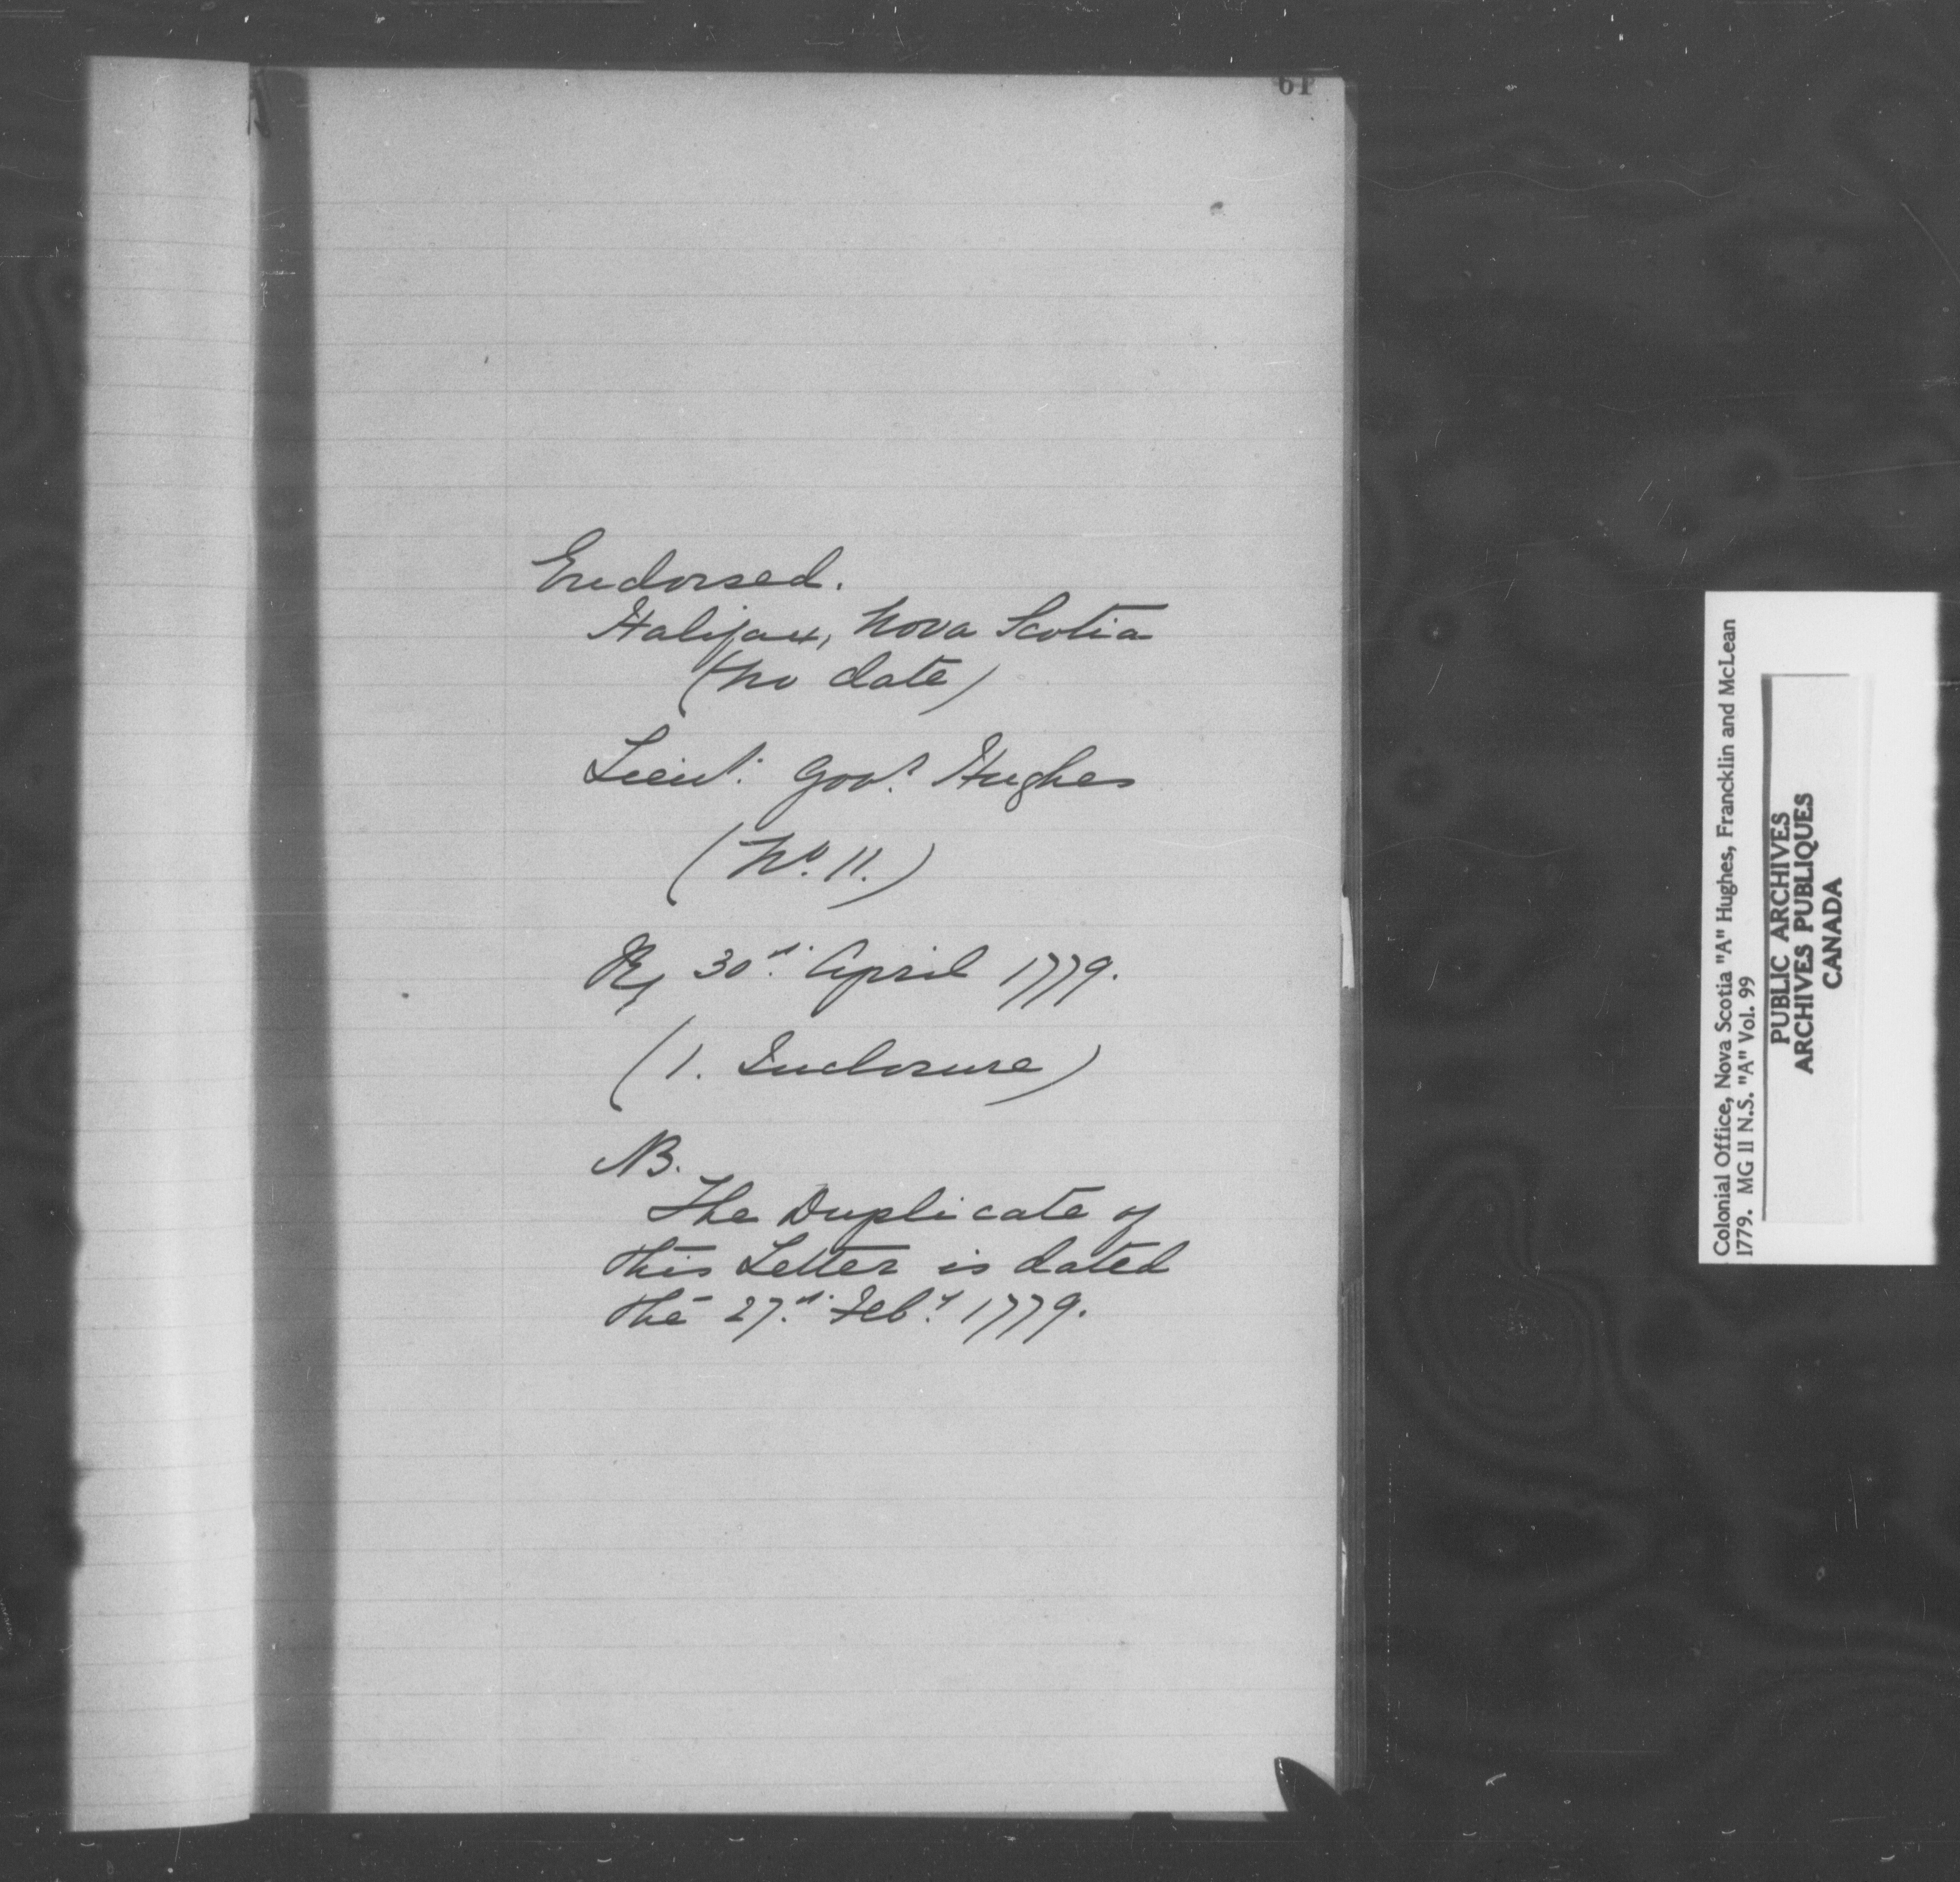 61
Endorsed.
Halifax, Nova Scotia
(no date)
Lieut. Govr. Hughes
(No. 11.)
R, 30th. April 1779.
(1. Inclosure)
NB.
The Duplicate of
this Letter is dated
the 27th. Feby. 1779.
Colonial Office, Nova Scotia "A" Hughes, Francklin and McLean
1779. MG 11 N.S. "A" Vol. 99
PUBLIC ARCHIVES
ARCHIVES PUBLIQUES
CANADA